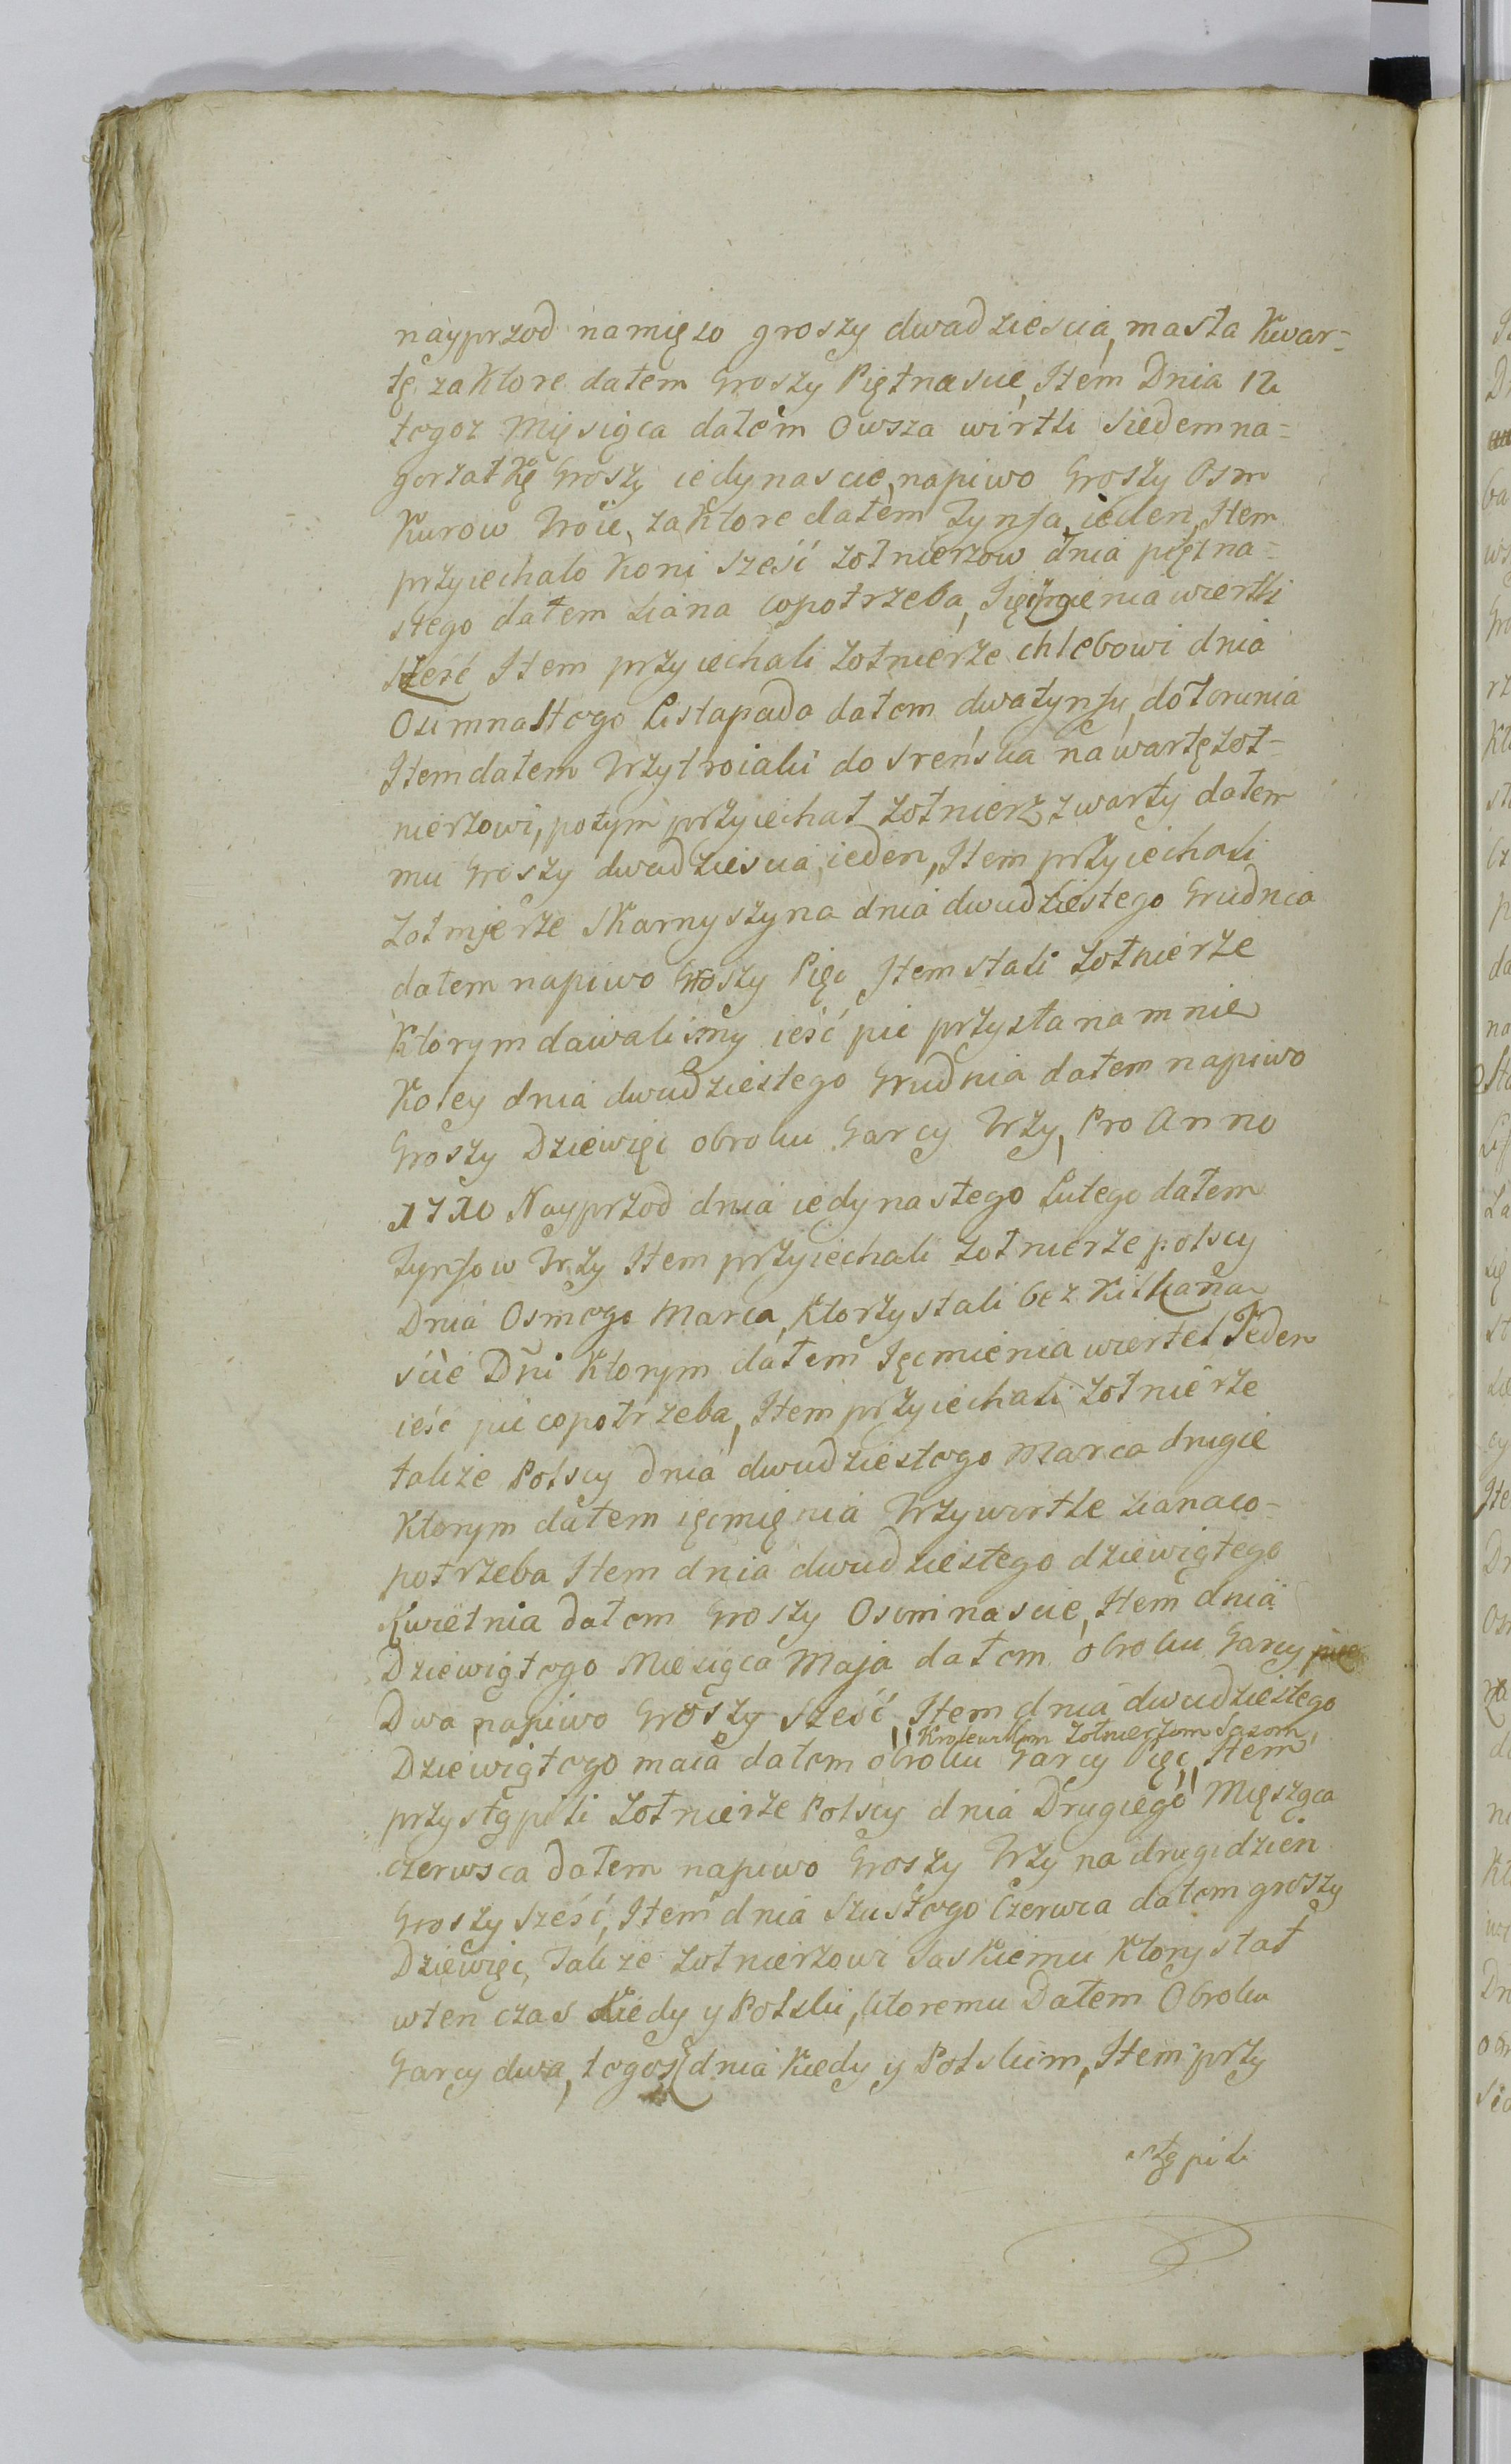 nayprzod namięso groszy dwadziescia, masła Kwar=
tę zaKtore dałem Groszy Piętnascie, Item Dnia 12
togoz Mięsiąca dałem Owsza wirtli siedemna=
gorzałkę Groszy iedynascie, napiwo Groszy Osm
Kurow troie, zaKtore dałem Tynfa ieden, Item
przyiechało Koni sześć zołnierzow dnia piętna=
stego dałem siana copotrzeba, Ięczmienia wiertli
sześć Item przyiechali zołnierze chlebowi dnia
Osimnastogo Listapada dałem dwatynfy, doTorunia
Item dałem trzytroiaki do sreńska nawartę zoł=
nierzowi, potym przyiechał zołnierz zwarty dałem
mu Groszy dwadziescia ieden, Item przyiechali
zołnjerze sKarnyszyna dnia dwudziestego Grudnia
dałem napiwo Groszy Pięc Item stali zołnierze
Ktorym dawalismy ieść pic przysła namnie
Koley dnia dwudziestego Grudnia dałem napiwo
Groszy Dziewięc obroku Garcy trzy, Pro Anno
1710 Nayprzod dnia iedynastego Lutego dałem
Tynfow trzy Item przyiechali zołnierze polscy
Dnia Osmogo Marca, Ktorzy stali bez Kilkana
scie Dni Ktorym dałem Ięcmienia wiertel Ieden
ieśc pic copotrzeba, Item przyiechali zołnierze
takze Polscy dnia dwudziestogo Marca drugie
Ktorym dałem ięcmięnia trzywirtle sianaco=
potrzeba Item dnia dwudziestego dziewiątego
Kwietnia dałem Groszy Osimnascie, Item dnia
Dziewiątogo Miesiąca Maja dałem obroku Garcy
Dwa napiwo Groszy sześć, Item dnia dwudziestego
Krolewskim zołnierzom Sasom
Dziewiątogo maia dałem obroku Garcy Pięc, Item
przystąpili zołnierze Polscy dnia Drugiego Mięsząca
czerwsca dałem napiwo Groszy trzy na drugidzień
Groszy sześć, Item dnia szustogo Czerwca dałem groszy
Dziewięc, Takze zołnierzowi SasKiemu Ktory stał
wten czas Kiedy y Polski, ktoremu Dałem Obroku
Garcy dwa, togosz dnia Kiedy y Polskim, Item przy
stąpili